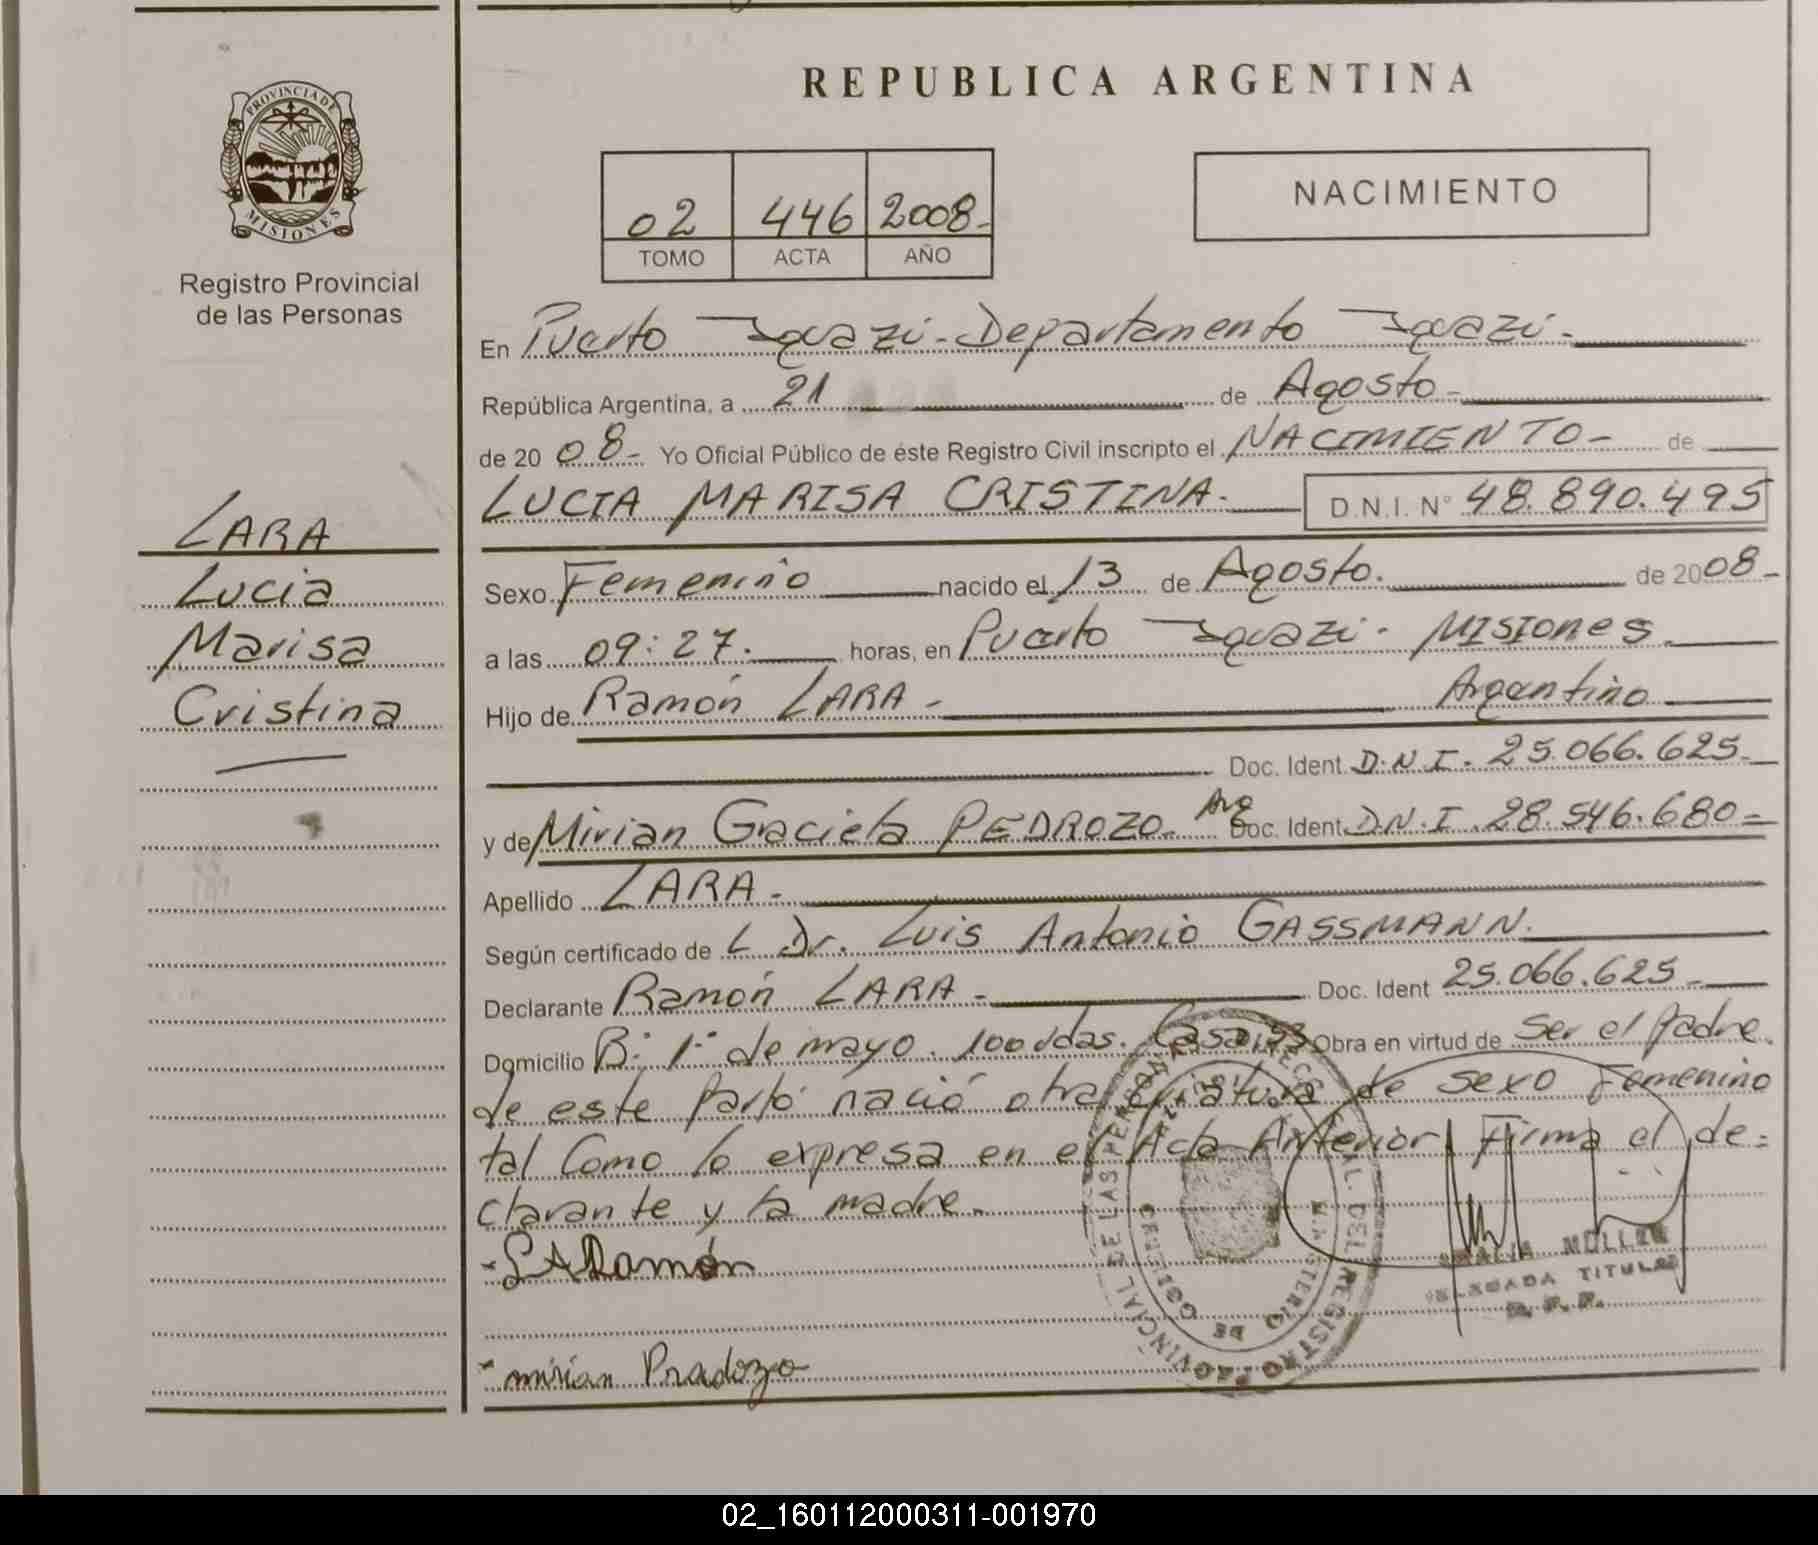 REPUBLICA ARGENTINA
PROVINCIA DE
MISIONES
Registro Provincial
de las Personas
02 446 2008-
TOMO ACTA AÑO
NACIMIENTO
En Puerto Iguazú - Departamento Iguazú -
República Argentina, a 21 de Agosto -
de 20 08 - Yo Oficial Público de éste Registro Civil inscripto el NACIMIENTO - de
LUCIA MARISA CRISTINA - D.N.I. N° 48.890.495
LARA
Lucia
Marisa
Cristina
Sexo Femenino nacido el 13 de Agosto. de 2008-
a las 09:27. horas, en Puerto Iguazú - MISIONES.
Hijo de Ramón LARA - Argentino
Doc. Ident. D.N.I. 25.066.625-
y de Mirian Graciela PEDROZO - Arg Doc. Ident. D.N.I. 28.546.680-
Apellido LARA -
Según certificado de L Dr. Luis Antonio GASSMANN.
Declarante Ramón LARA - Doc. Ident 25.066.625-
Domicilio B: 1° de mayo. 100 vdas. Casa Obra en virtud de ser el padre.
de este parto nació otra criatura de sexo Femenino
tal Como lo expresa en el Acta Anterior, Firma el de=
clarante y la madre.
Ramón
MULLER
TITULAR
mirian Pradozo
REGISTRO PROVINCIAL DE LAS PERSONAS
MINISTERIO DE
02_160112000311-001970